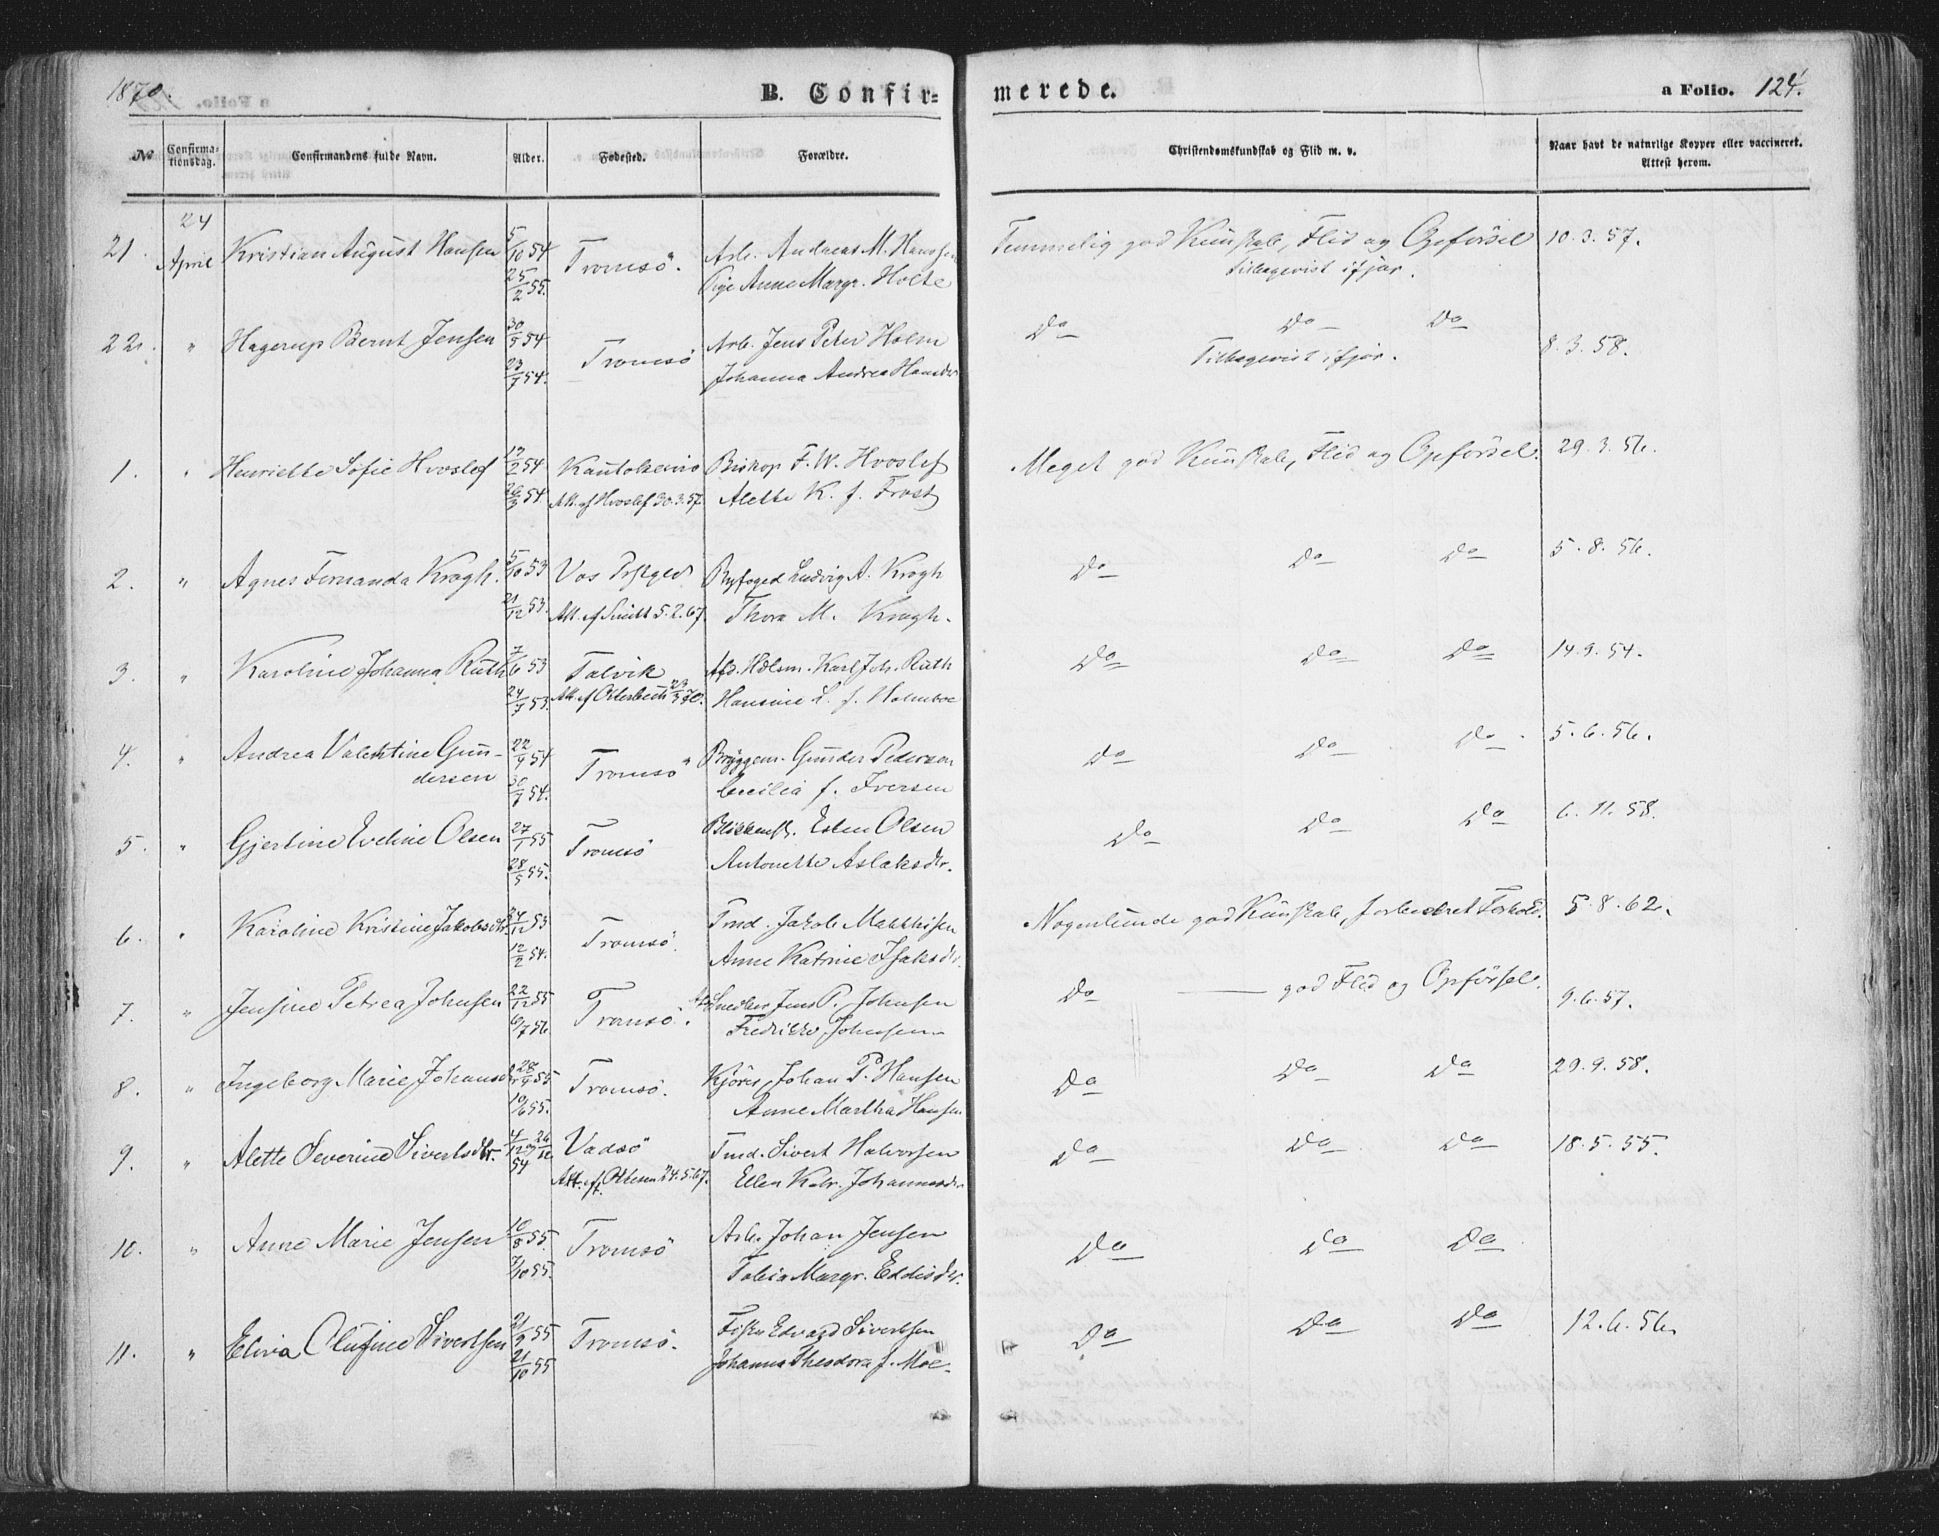 1870. B. Confir= merede. a Folio. 124.
No Confirma-tionsdag. Confirmandens fulde Navn. Alder. Fødested. Forældre. Christendomskundskab og Flid m. v. Naar havt de naturlige Kopper eller vaccineret. Attest herom.
21. 24 April Kristian August Hansen 5/10 54 Tromsö. Arb. Andreas M. Hanssen Temmelig god Kunskab, Flid og Opförsel 10.3.57.
25/2 55. Pige Anne Margr. Holte Tilbagevist ifjor.
22. " Hagerup Bernt Jensen 30/5 54 Tromsö Arb. Jens Peter Holm Do Do Do 8.3.58.
23/7 54. Johanna Andrea Hansdr Tilbagevist ifjor.
1. " Henriette Sofie Hvoslef 12/2 54 Kautokeino Biskop F. W. Hvoslef Meget god Kunskab, Flid og Opförsel. 29.3.56.
26/3 54. Att. af Hvoslef 30.3.57. Alette K. f. Frost
2. " Agnes Fernanda Krogh. 5/10 53 Vos Prstgjld Byfoged Ludvig A. Krogh Do Do Do 5.8.56.
21/12 53. Att. af Smitt 5.2.67. Thora M. Krogh.
3. " Karoline Johanna Ruth 7/6 53 Talvik Afd. Hdlsm. Karl Joh. Ruth Do Do Do 14.9.54.
24/7 53. Hansine L. f. Holmboe
4. " Andrea Valentine Gun- 22/4 54 Tromsö Bryggem. Gunder Pedersen Do Do Do 5.6.56.
dersen 30/7 54. Cecilia f. Iversen
5. " Gjertine Eveline Olsen 27/1 55 Tromsö Blikkensl. Esten Olsen Do Do Do 6.11.58.
28/5 55. Antonette Aslaksdtr.
6. " Karoline Kristine Jakobsdtr. 53 Tromsö. Tmd. Jakob Matthisen Nogenlunde god Kunskab, forbedret Forhold. 5.8.62.
12/2 54. Anne Katrine Isaksdtr.
7. " Jensine Petrea Johnsen 22/12 55 Tromsö. Snedker Jens P. Johnsen Do god Flid og Opförsel. 9.6.57.
6/7 56. Fredrikke Johnsen
8. " Ingeborg Marie Johansdtr 55 Tromsö. Kjörer Johan P. Hansen Do Do Do 29.9.58.
10/6 55. Anne Martha Hansen
9. " Alette Severine Sivertsdtr. Vadsö Tmd. Sivert Halvorsen Do Do Do 18.5.55.
54 Att. af Ottesen 24.5.67. Ellen Katr. Johannesdtr
10. " Anne Marie Jensen 10/8 55. Tromsö Arb. Johan Jensen Do Do Do
7/10 55. Tobia Margr. Eddisdtr.
11. " Elivia Olufine Sivertsen 21/9 55 Tromsö. Fisker Edvard Sivertsen Do Do Do 12.6.56.
21/10 55 Johanna Theodora f. Moe.